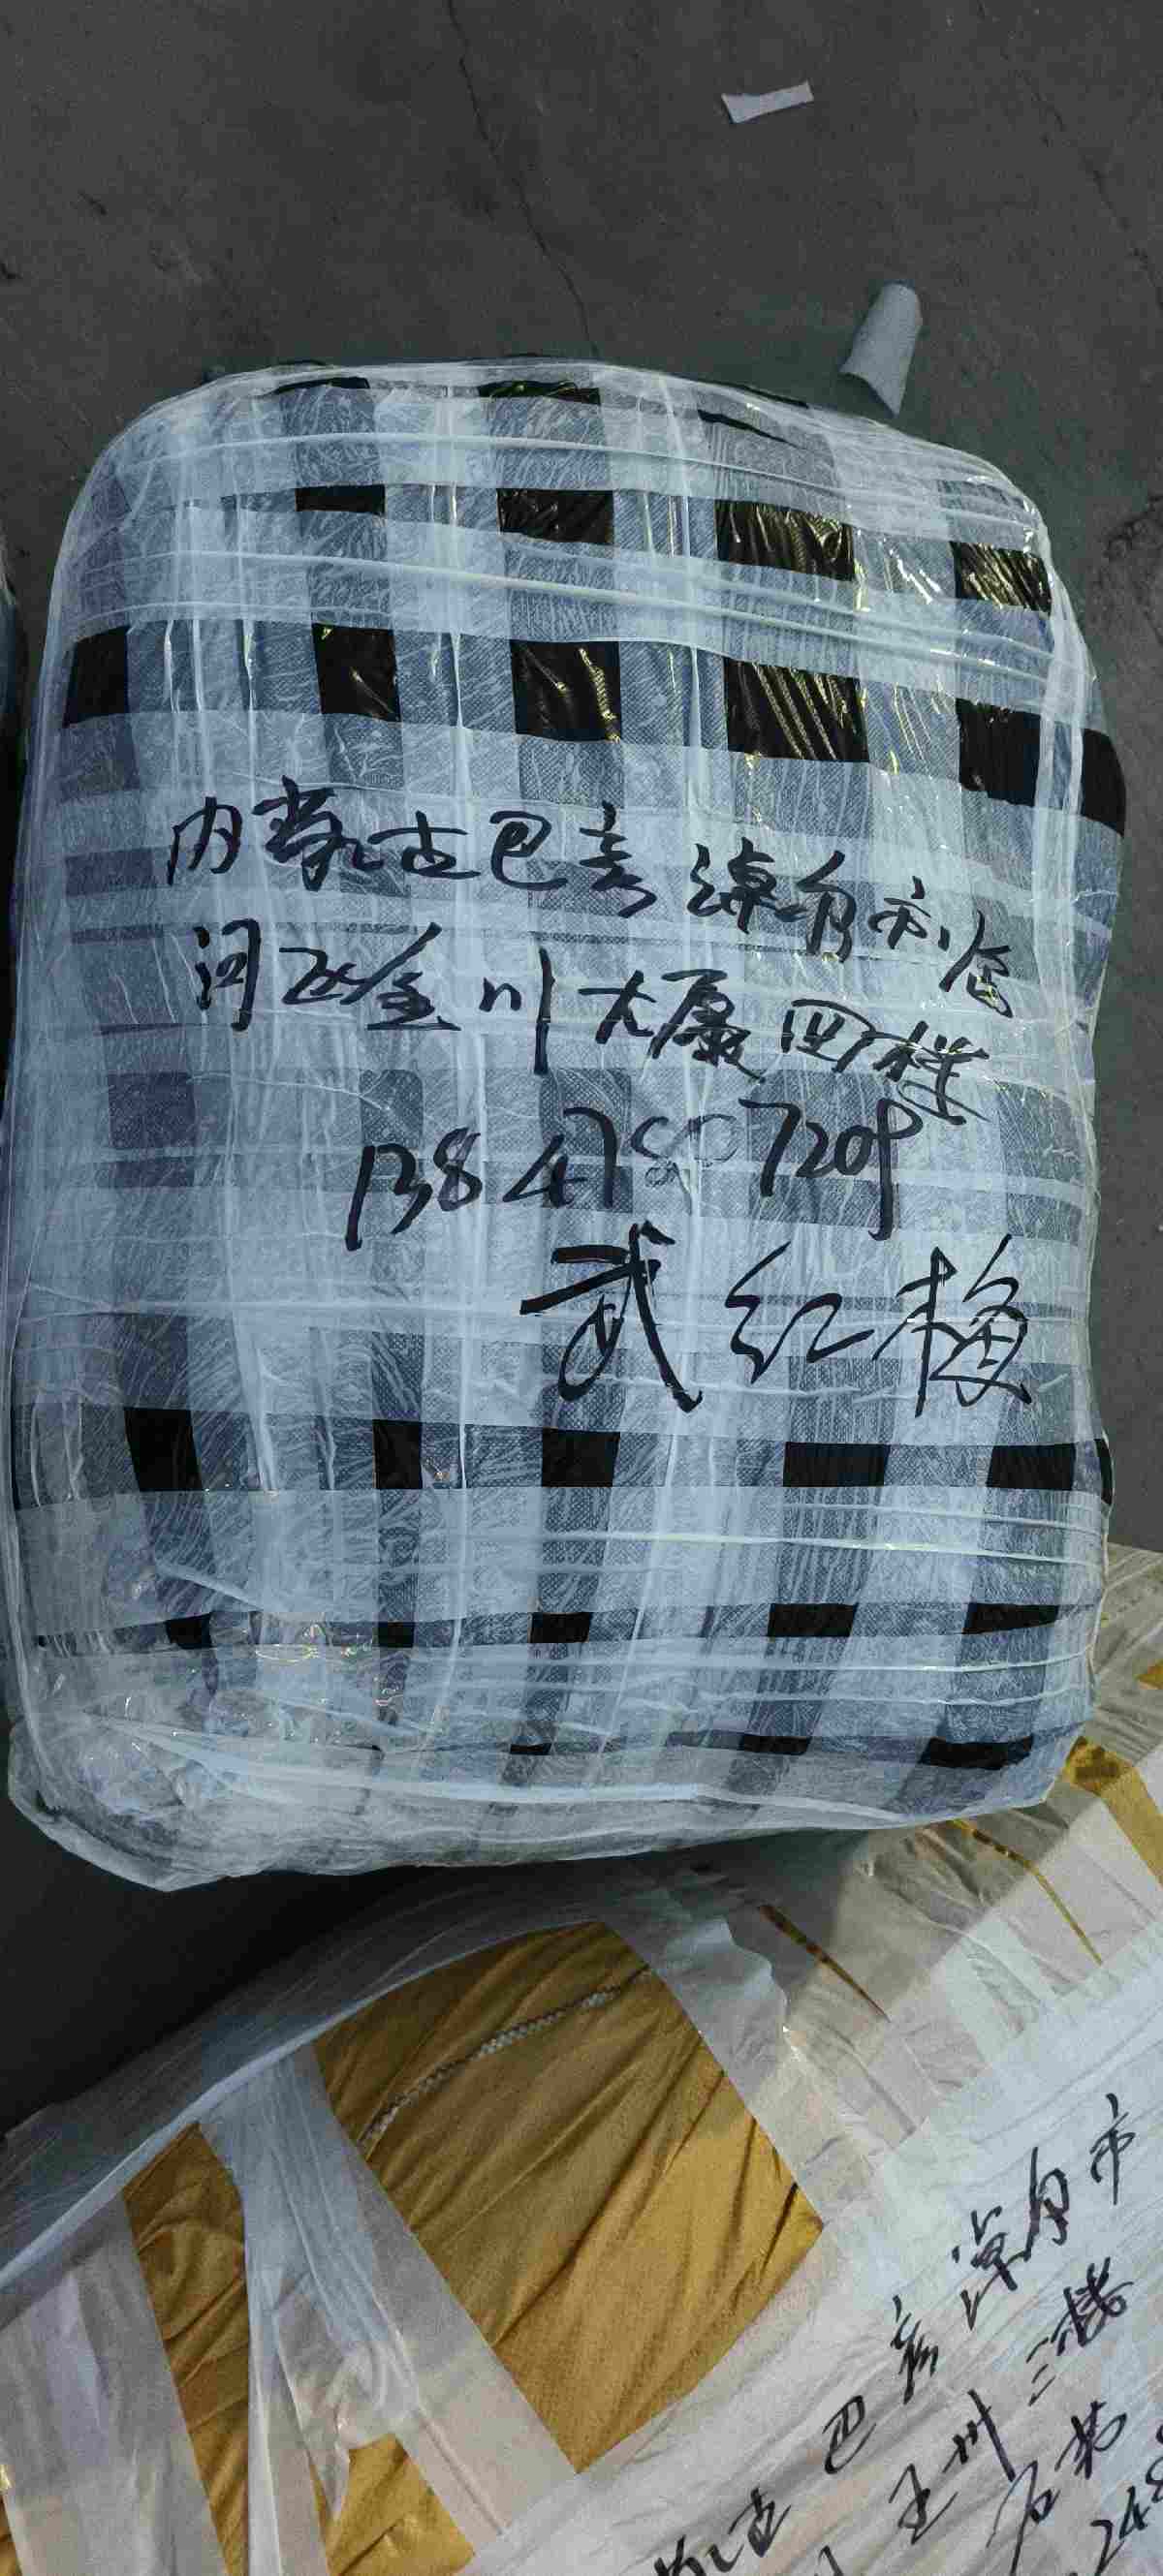 内蒙古巴彦淖尔市临
河区金川大厦四楼
13847807209
武红梅
巴彦淖尔市
三楼